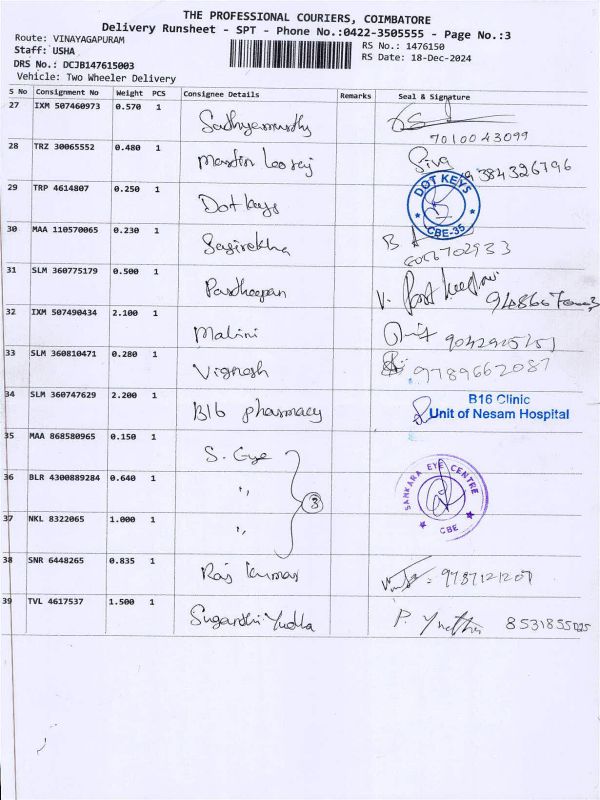 THE PROFESSIONAL COURIERS, COIMBATORE
Delivery Runsheet - SPT - Phone No.:0422-3505555 - Page No.:3
Route: VINAYAGAPURAM
RS No.: 1476150
Staff: USHA
RS Date: 18-Dec-2024
DRS No.: DCJB147615003
Vehicle: Two Wheeler Delivery
S No Consignment No Weight PCS Consignee Details Remarks Seal & Signature
27 IXM 507460973 0.570 1 Sathyamurthy
7010043099
28 TRZ 30065552 0.480 1 Martin Siva
29 TRP 4614807 0.250 1 Dot keys DOT KEYS CBE-35
30 MAA 110570065 0.230 1 Sasirekha B
31 SLM 360775179 0.500 1 V.
32 IXM 507490434 2.100 1 Malini
33 SLM 360810471 0.280 1 Vignesh 9789662087
34 SLM 360747629 2.200 1 B16 pharmacy B16 Clinic
Unit of Nesam Hospital
35 MAA 868580965 0.150 1 S. Eye
36 BLR 4300889284 0.640 1 " 3 SANKARA EYE CENTRE CBE
37 NKL 8322065 1.000 1 "
38 SNR 6448265 0.835 1 Raj kumar 9787121207
39 TVL 4617537 1.500 1 Sugandhi P. 8531855025